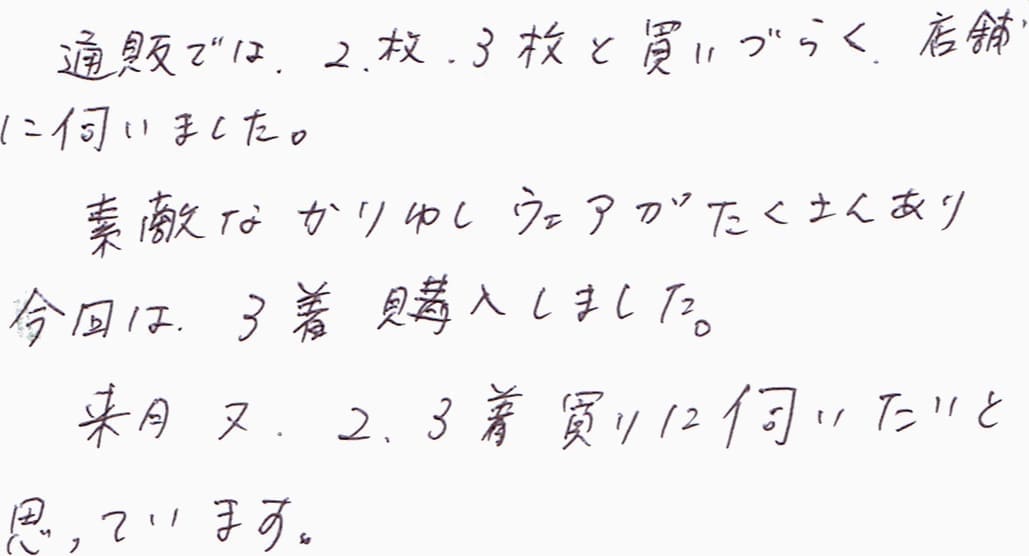 通販では、2、枚、3枚と買いづらく、店舗
に伺いました。
素敵なかりゆしウェアがたくさんあり
今回は、3着購入しました。
来月又、2、3着買いに伺いたいと
思っています。